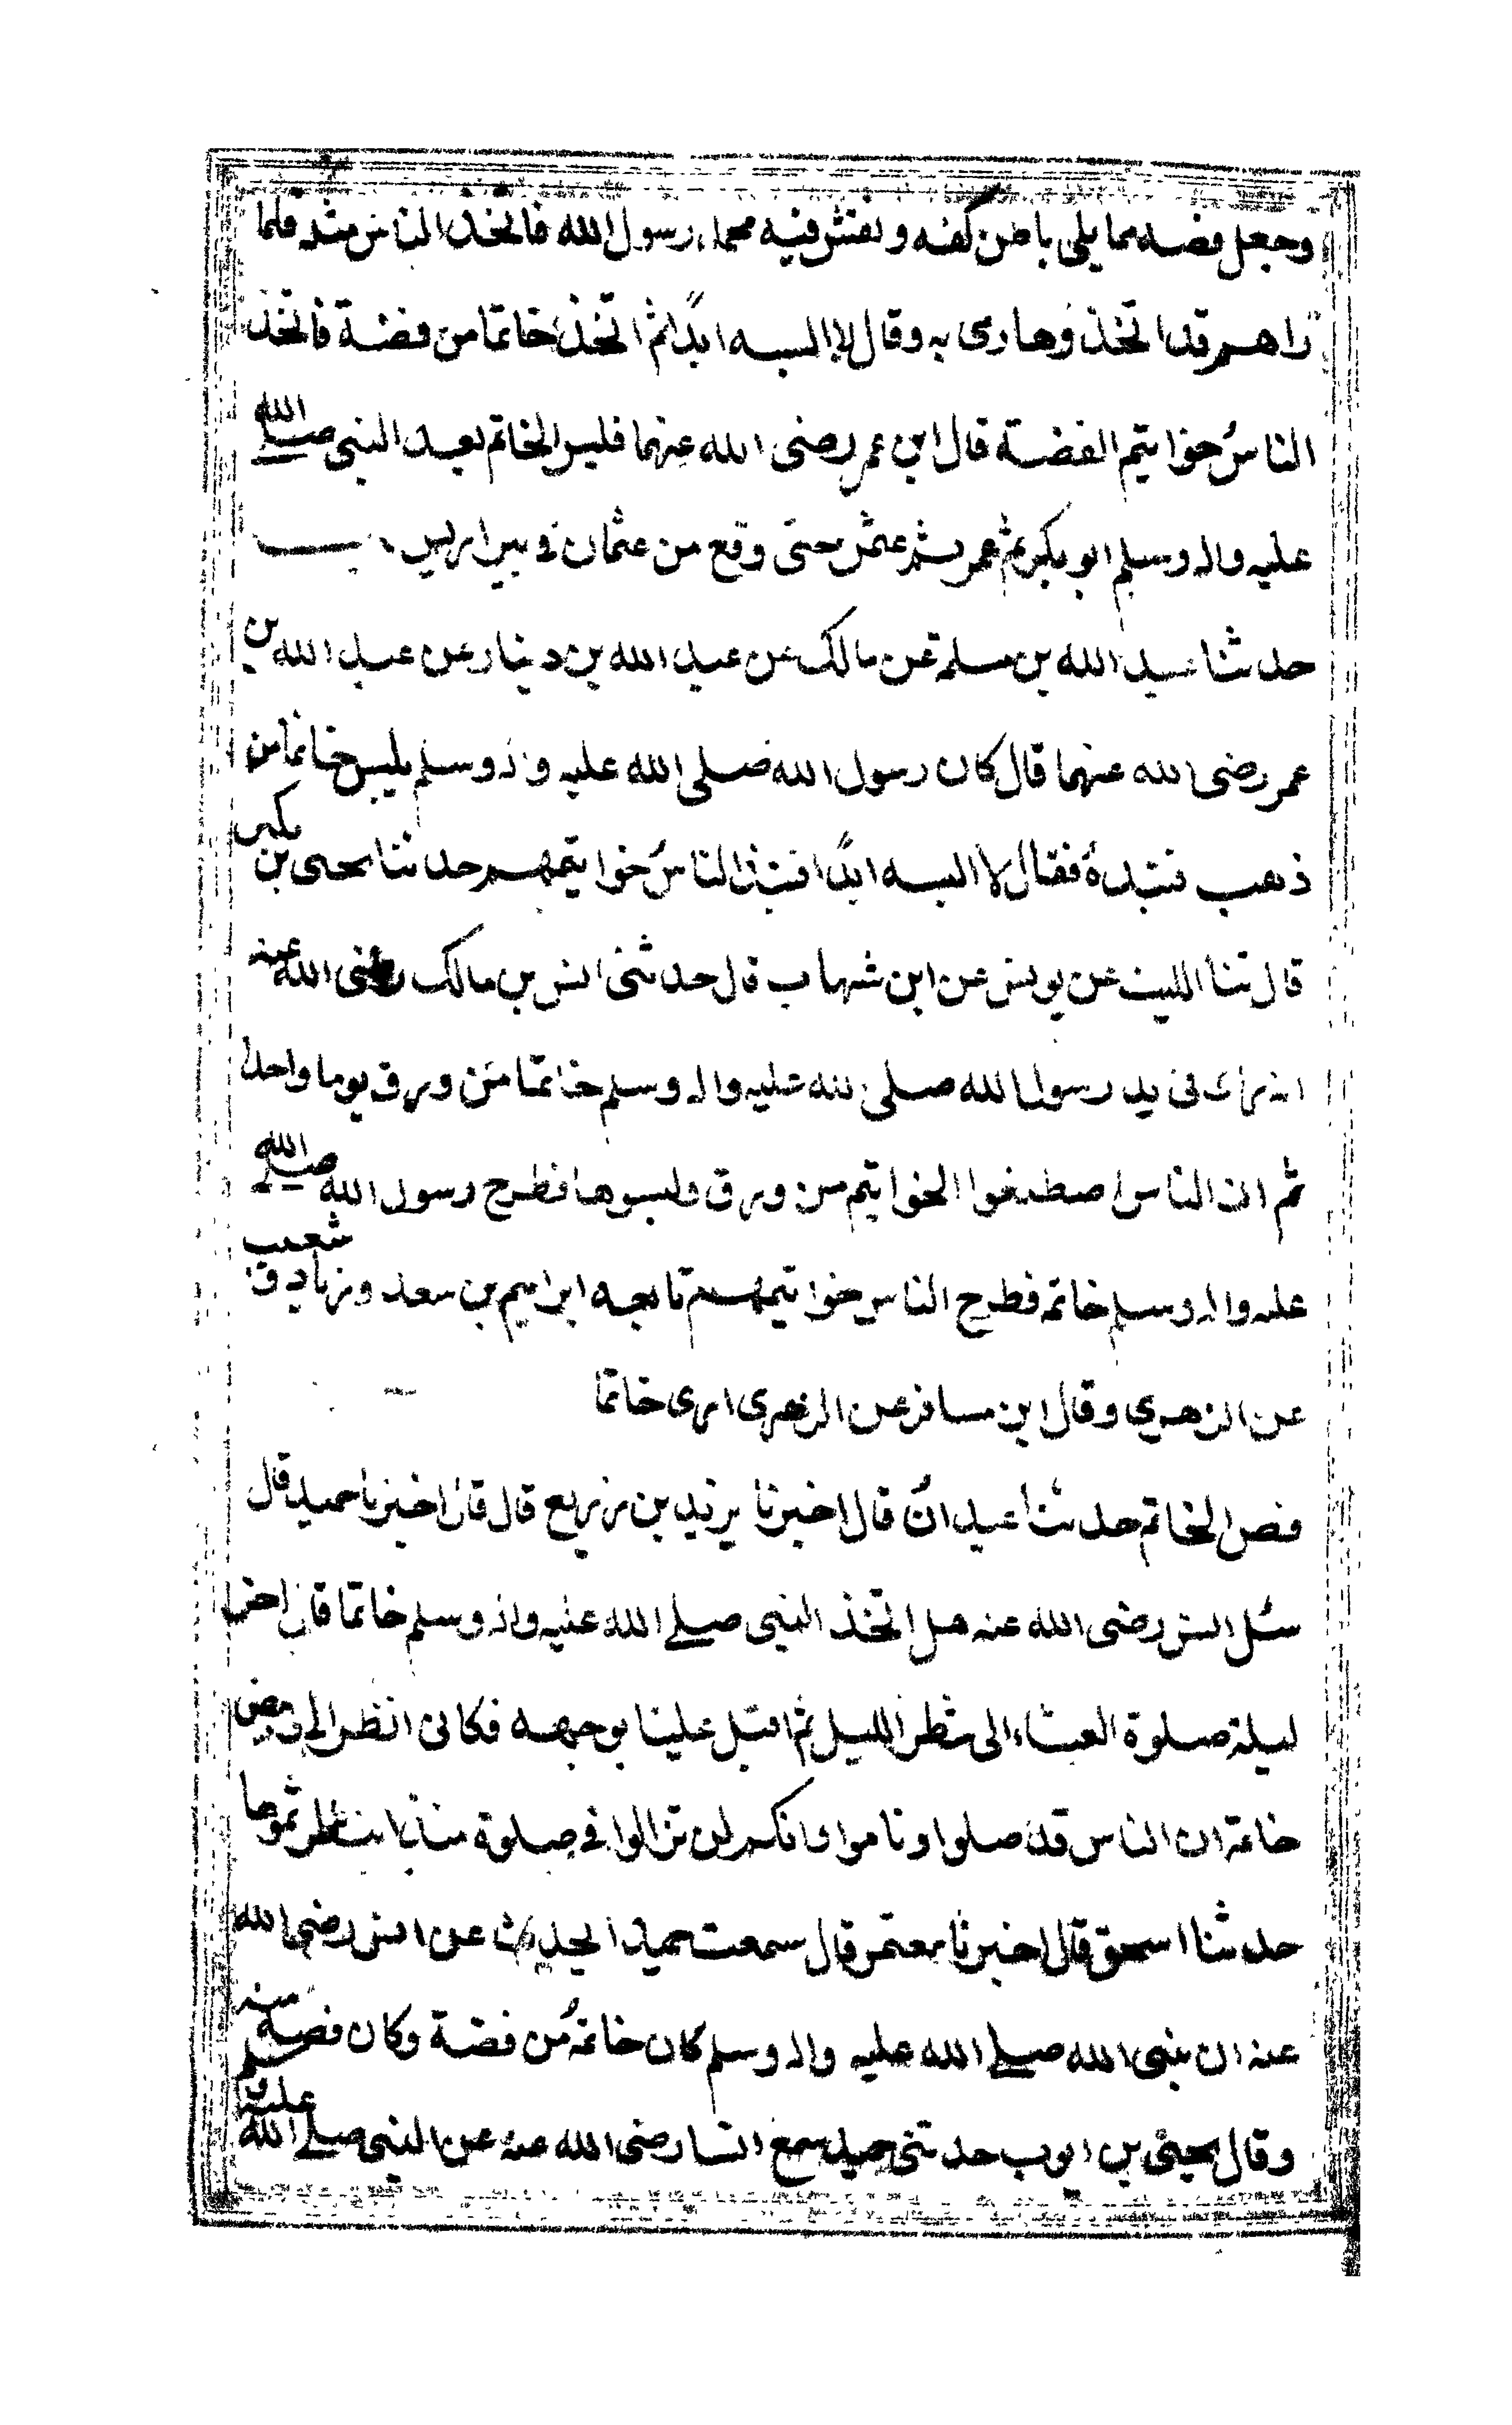 وجعل فصه مما يلى باطن كفه ونقش فيه محمد رسول الله فاتخذ الناس مثله فلما
راهم قد اتخذوها رمى به وقال لا البسه ابدًا ثم اتخذ خاتما من فضة فاتخذ
الناسُ خواتيم الفضة قال ابن عمر رضى الله عنهما فلبس الخاتم بعد النبى صلى الله
عليه واله وسلم ابو بكر ثم عمر ثم عثمن حتى وقع من عثمان فى بير اريس
حدثنا عبد الله بن مسلمة عن مالك عن عبد الله بن دينار عن عبد الله بن
عمر رضى الله عنهما قال كان رسول الله صلى الله عليه واله وسلم يلبس خاتما من
ذهب فنبذهُ فقال لا البسه ابدًا فنبذ الناسُ خواتيمهم حدثنا يحيى بن بكير
قال ثنا الليث عن يونس عن ابن شهاب قال حدثنى انس بن مالك رضى الله عنه
انه راى فى يد رسول الله صلى الله عليه واله وسلم خاتما من ورق يوما واحدا
ثم ان الناس اصطنعوا الخواتيم من ورق ولبسوها فطرح رسول الله صلى الله
عليه واله وسلم خاتمه فطرح الناس خواتيمهم تابعه ابراهيم بن سعد وزياد و شعيب
عن الزهري وقال ابن مسافر عن الزهرى ارى خاتما
فص الخاتم حدثنا عبدان قال اخبرنا يزيد بن زريع قال قال اخبرنا حميد قال
سئل انس رضى الله عنه هل اتخذ النبى صلى الله عليه واله وسلم خاتما قال اخر
ليلة صلوة العشاء الى شطر الليل ثم اقبل علينا بوجهه فكانى انظر الى وبيص
خاتمه ان الناس قد صلوا وناموا وانكم لن تزالوا فى صلوة منذ ما انتظرتموها
حدثنا اسحق قال اخبرنا معتمر قال سمعت حميدا يحدث عن انس رضى الله
عنه ان نبى الله صلى الله عليه واله وسلم كان خاتمهُ من فضة وكان فصه منه
وقال يحيى بن ايوب حدثنى حميد سمع انسا رضى الله عنه عن النبى صلى الله عليه وسلم